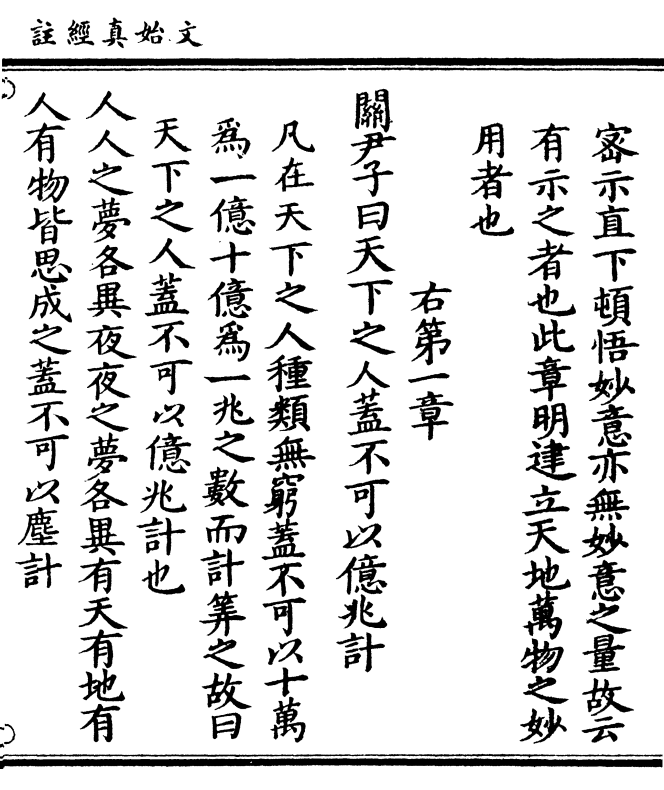 文始真經註
宻示直下頓悟妙意亦無妙意之量故云
有示之者也此章明建立天地萬物之妙
用者也
右第一章
關尹子曰天下之人蓋不可以億兆計
凡在天下之人種類無窮蓋不可以十萬
爲一億十億爲一兆之數而計筭之故曰
天下之人蓋不可以億兆計也
人人之夢各異夜夜之夢各異有天有地有
人有物皆思成之蓋不可以塵計